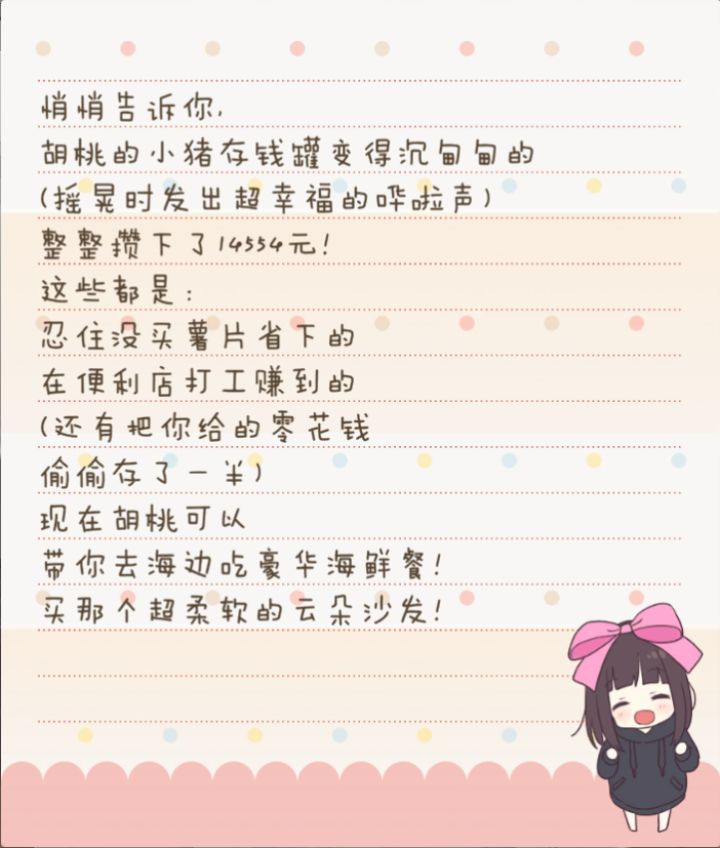 悄悄告诉你,
胡桃的小猪存钱罐变得沉甸甸的
(摇晃时发出超幸福的哗啦声)
整整攒下了14554元!
这些都是:
忍住没买薯片省下的
在便利店打工赚到的
(还有把你给的零花钱
偷偷存了一半)
现在胡桃可以
带你去海边吃豪华海鲜餐!
买那个超柔软的云朵沙发!